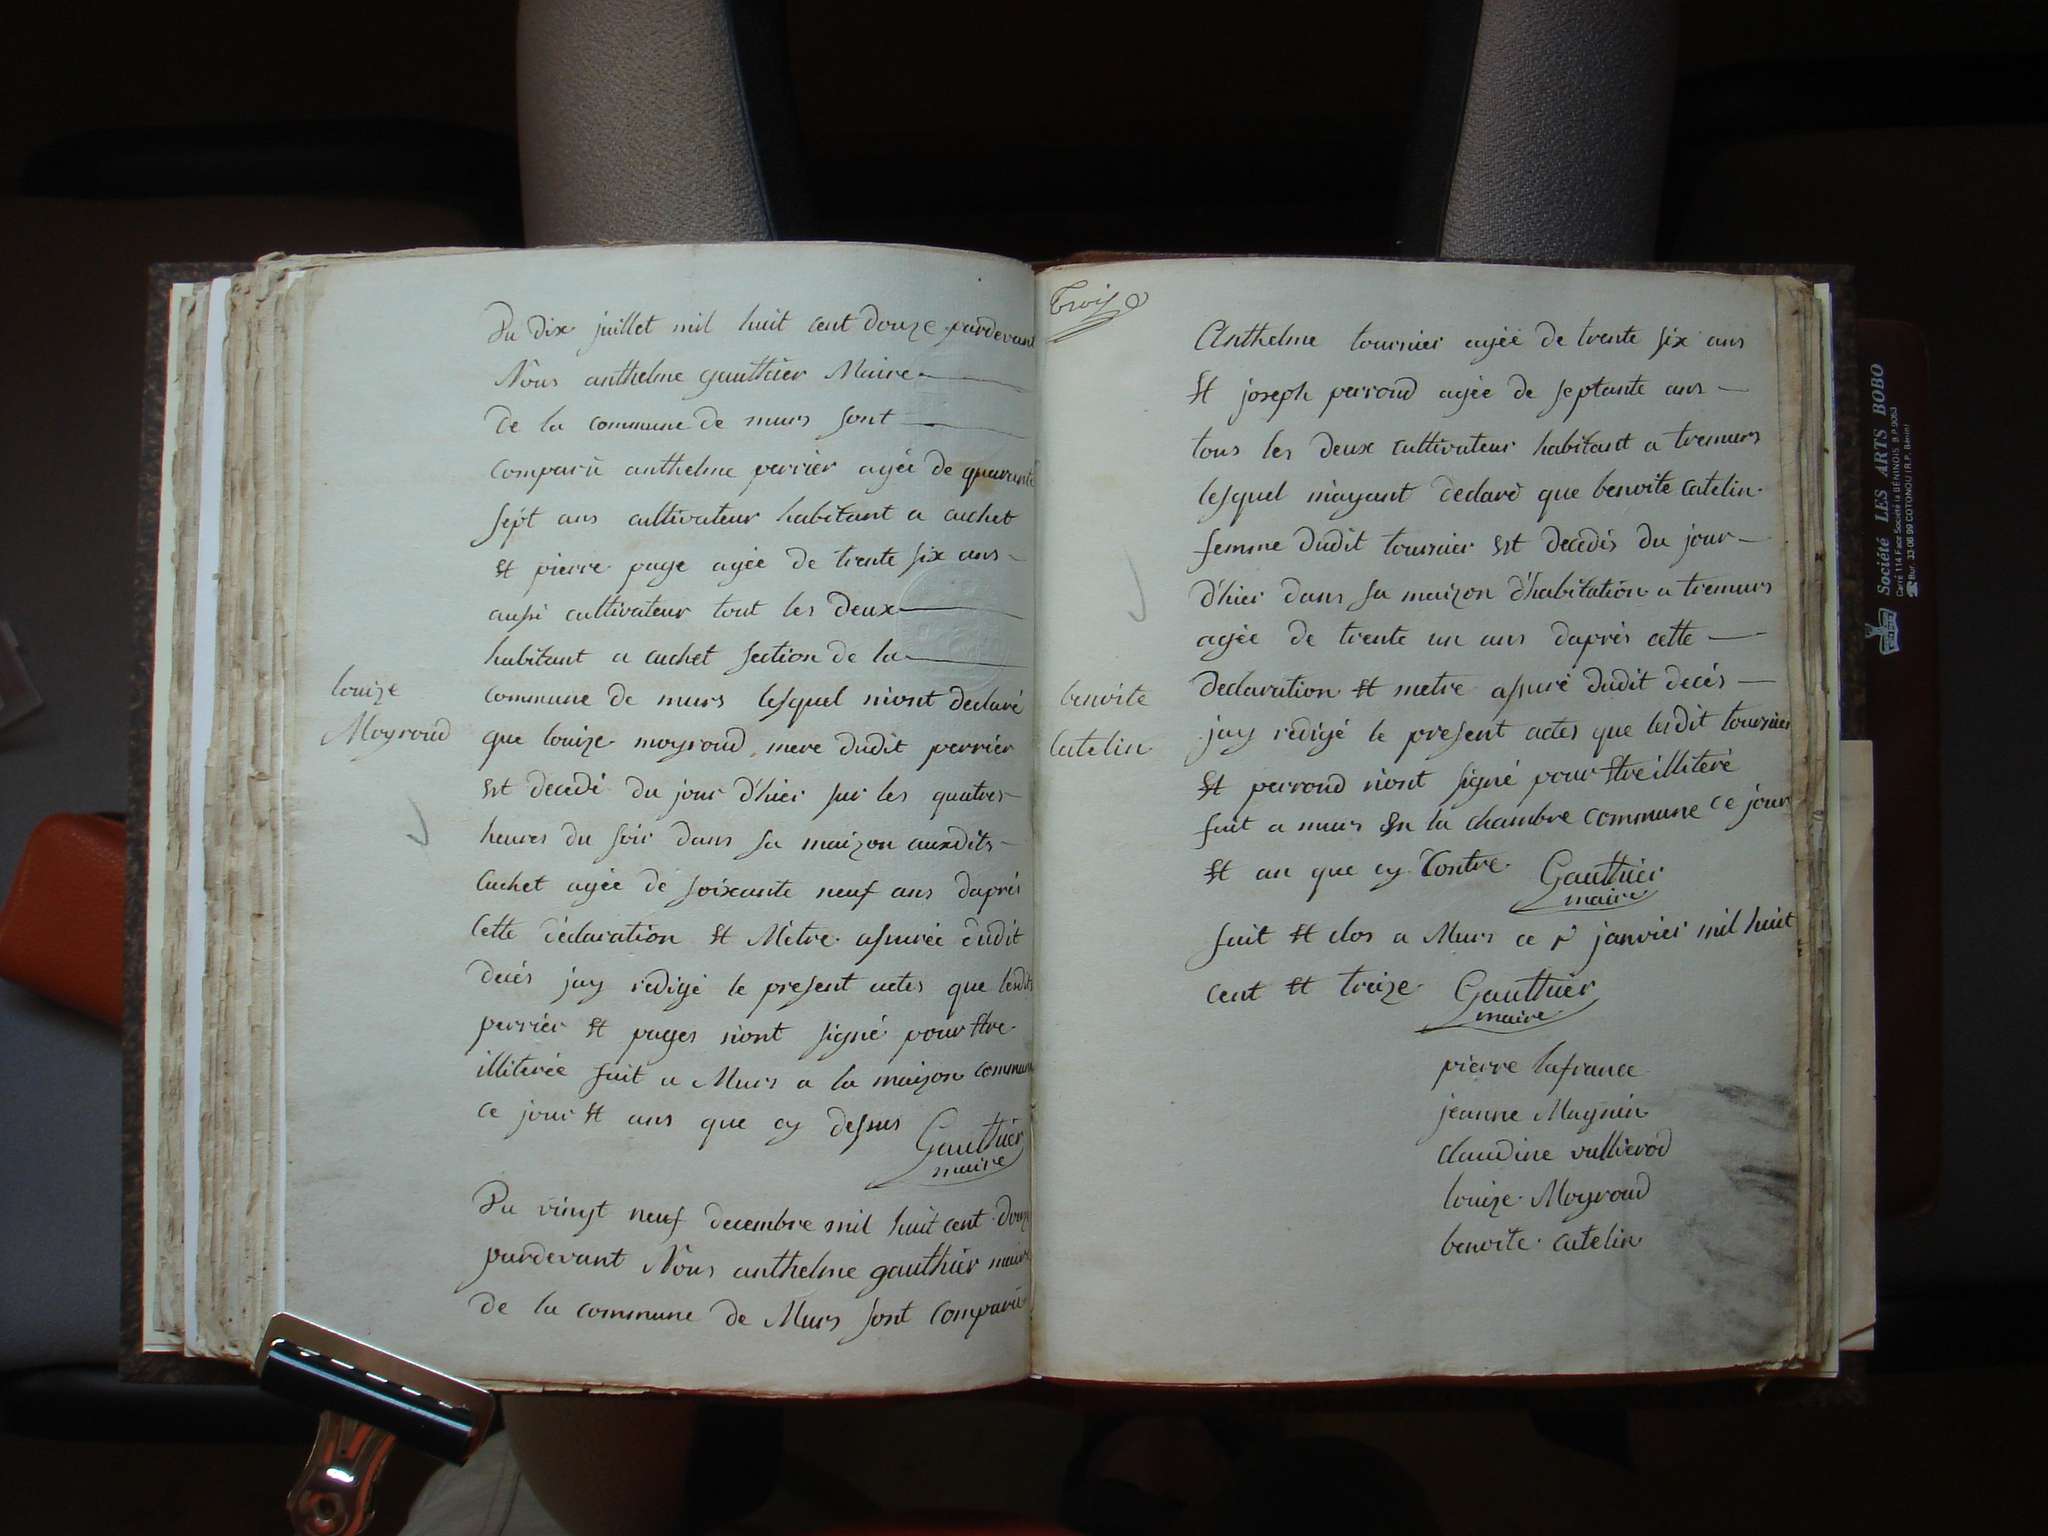 Du dix juillet mil huit cent douze pardevant
Nous anthelme gauthier Maire
de la commune de murs sont
comparù anthelme perrier agée de quarante
sept ans cultivateur habitant a cuchet
Et pierre page agée de trente six ans
aussi cultivateur tout les deux
habitant a cuchet section de la
louize
Moyroud
commune de murs lesquel m'ont declaré
que louize moyroud mere dudit perrier
Est decedé du jour d'hier sur les quatres
heures du soir dans sa maizon auxdits
Cuchet agée de soixante neuf ans daprés
Cette déclaration Et Mètre assurée dudit
decés jay redigé le present actes que lesdits
perrier Et pages n'iont signé pour Etre
illiterée fait a Murs a la maizon commune
ce jour Et ans que cy dessus
Gauthier
maire
Du vingt neuf decembre mil huit cent douze
pardevant Nous anthelme gauthier maire
de la commune de Murs sont comparù
Trois
Anthelme tournier agée de trente six ans
Et joseph perroud agée de septante ans
tous les deux cultivateur habitant a tremurs
lesquel m'ayant declaré que benoite catelin
femme dudit tournier Est decedés du jour
d'hier dans sa maizon d'habitation a tremurs
agée de trente un ans daprés cette
benoite
Catelin
declaration Et metre assuré dudit decés
jay redigé le present actes que lesdit tournier
Et perroud n'iont signé pour Etre illiteré
fait a murs En la chambre commune ce jour
Et an que cy Contre
Gauthier
maire
fait Et clos a Murs ce janvier mil huit
cent Et treize
Gauthier
maire
pierre lafrance
jeanne Magnin
claudine vullierod
louize Moyroud
benoite catelin
Société LES ARTS BOBO
Carré 114 Face Société la BÉNINOIS B.P.9053
Bur. 33-06 99 COTONOU (R.P. Bénin)